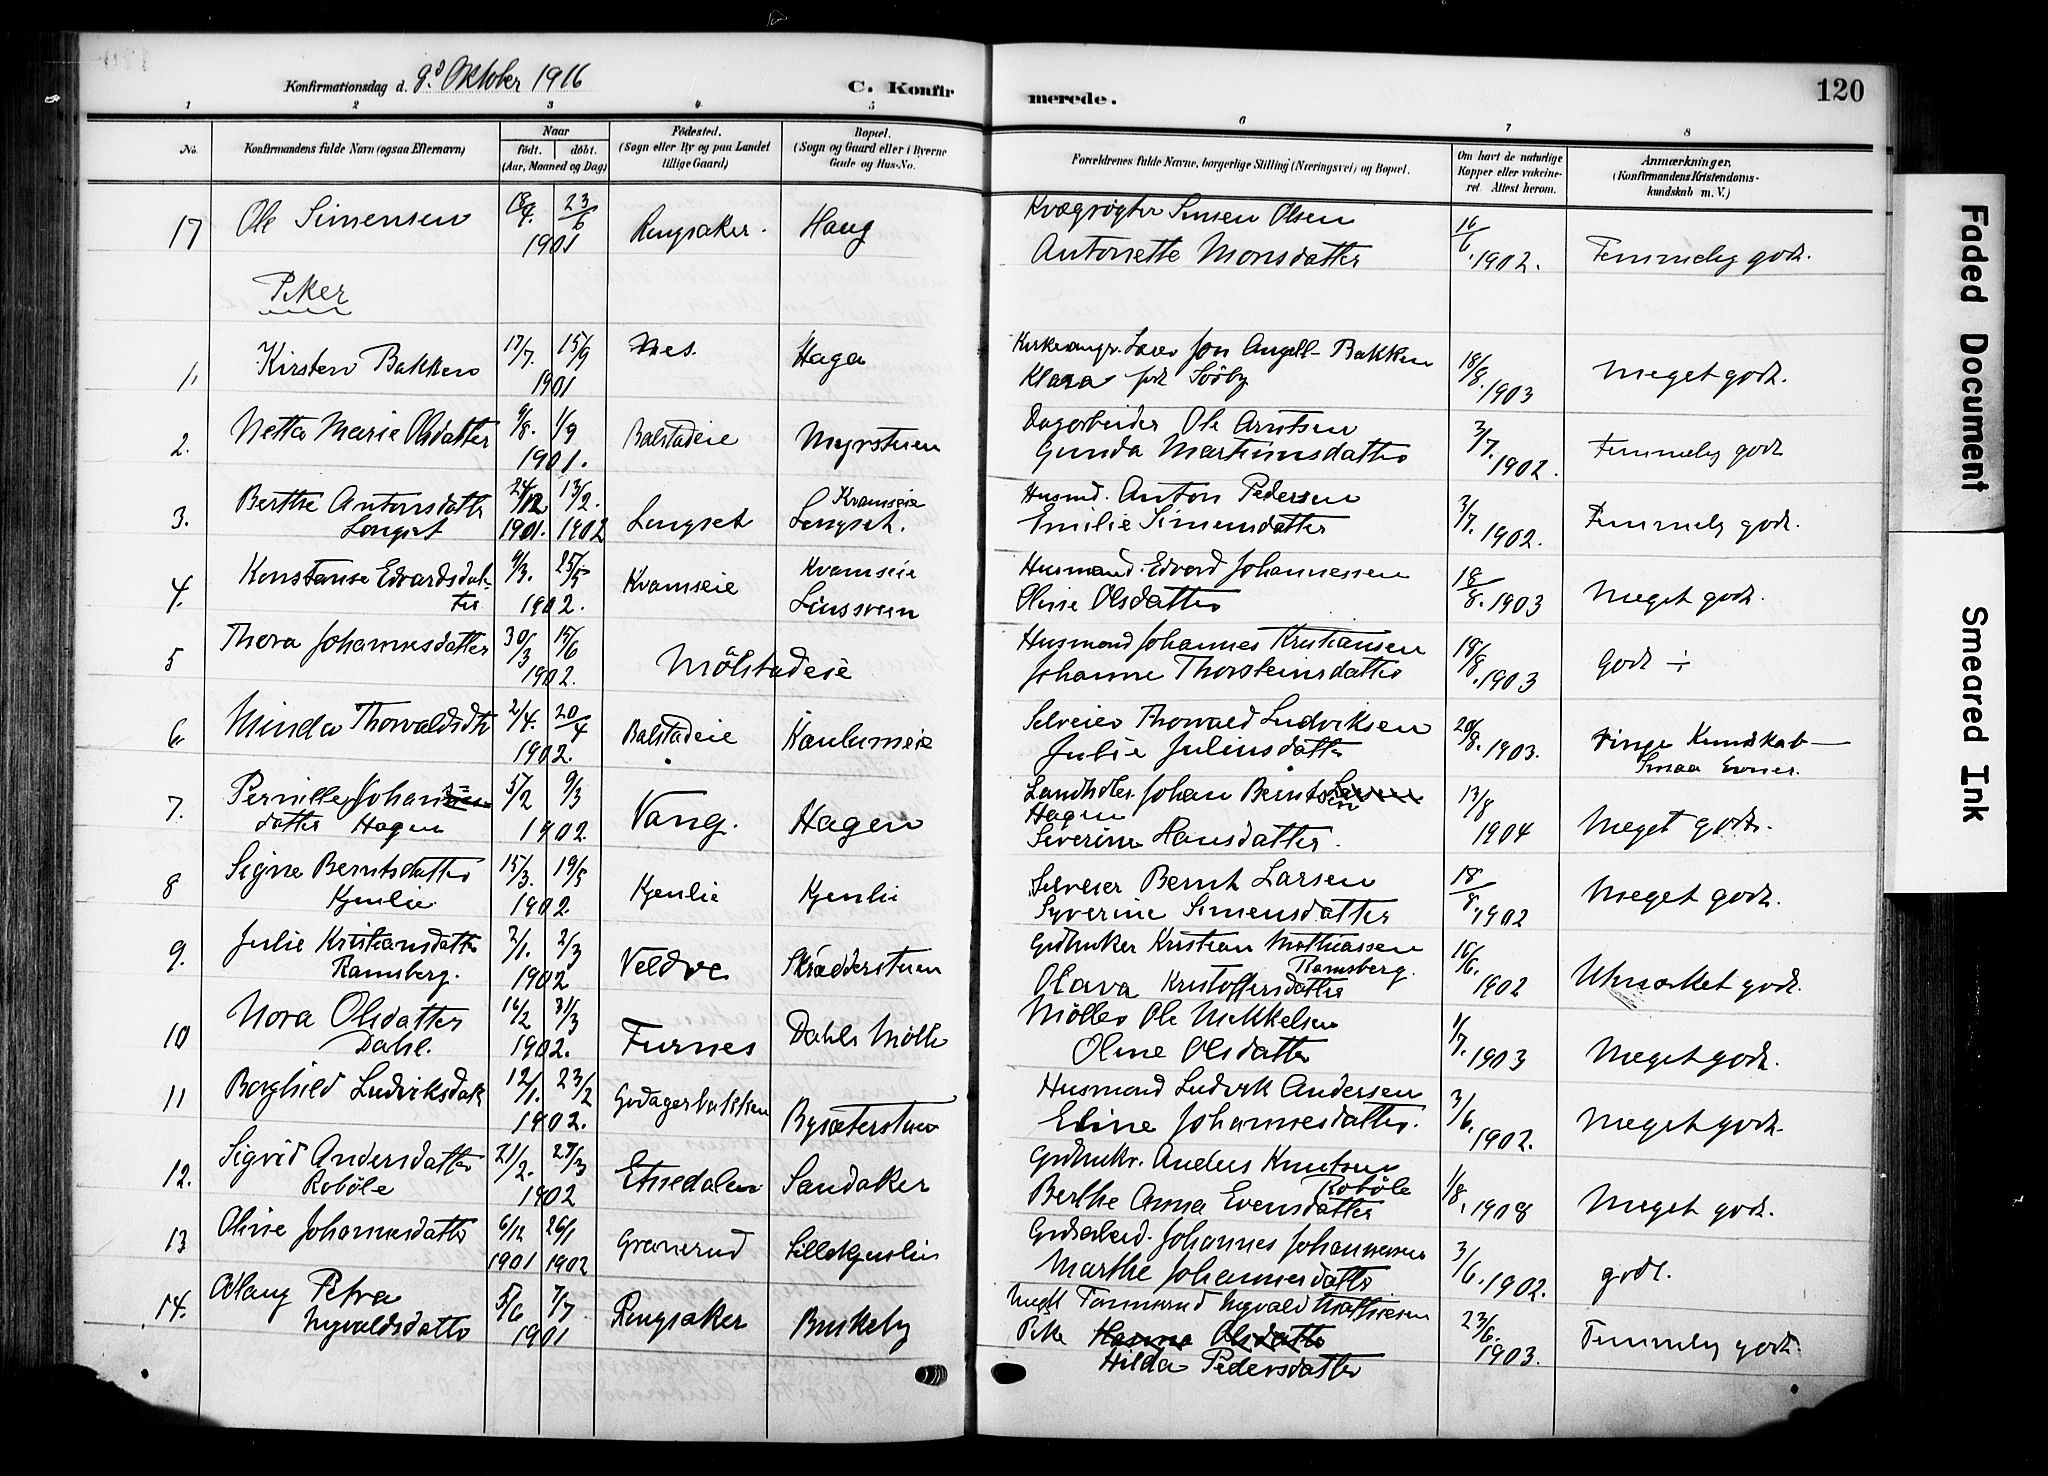 Konfirmationsdag d. 9d Oktober 1916
C. Konfir
merede.
120
1 2 3 4. 5 6 7 8
No.
Konfirmandens fulde Navn (ogsaa Efternavn)
Naar
født. døbt.
(Aar, Maaned og Dag)
Fødested.
(Sogn eller By og paa Landet
tillige Gaard)
Bopæl.
(Sogn og Gaard eller i Byerne
Gade og Hus-No.
Forældrenes fulde Navne, borgerlige Stilling (Næringsvei) og Bopæl.
Om havt de naturlige
Kopper eller vakcine-
ret. Attest herom.
Anmærkninger,
(Konfirmandens Kristendoms-
kundskab m. V.)
17 Ole Simensen 18/4. 23/6 1901 Ringsaker. Haug
Kvægrøgter Simen Olsen
Antonette Monsdatter
16/6. 1902. Temmelig godt.
Piker
1. Kirsten Bakken 17/7. 15/9 1901 Nes. Haga
Jon Angell-Bakken
Klara født Sööby
18/8. 1903 Meget godt.
2. Netta Marie Olsdatter 9/8. 1/9 1901. Balstadeie Myrstuen
Dagarbeider Ole Arntsen
Gunda Martinusdatter
3/7. 1902. Temmelig godt
3. Berthe Antonsdattr
Longset
24/12 13/2.
1901. 1902
Lengset
Kvamseie
Lengset.
Husmd. Anton Pedersen
Emilie Simensdatter
3/7. 1902. Temmelig godt.
4. Konstanse Edvardsdat-
ter
9/3. 25/5 1902.
Kvamseie
Kvamseie
Linsveen
Husmand. Edvard Johannessen
Oline Olsdatter
18/8. 1903 Meget godt.
5 Thora Johannesdatter 30/3 15/6 1902. Mölstadeie
Husmand Johannes Kristiansen
Johanne Thorsteinsdatter
18/8. 1903 Godt ÷
6 Minda Thorvaldsdtr 2/4. 20/4 1902. Balstadeie Kaulumeie
Selveier Thorvald Ludviksen
Julie Juliusdatter
20/8. 1903.
ringe Kundskab —
Smaa Evner.
7. Pernille Johans
datter Hagen
5/2 9/3 1902. Vang. Hagen
Landhdler. Johan Berntsen
Hagen
Severine Hansdatter.
13/8 1904 Meget godt.
8 Signe Berntsdatter
Kjenlie
15/3. 19/5 1902. Kjenlie Kjenlie
Selveier Bernt Larsen
Syverine Simensdatter
18/8. 1902 Meget godt.
9. Julie Kristiansdatter
Ramsberg.
2/1. 2/3 1902 Veldre Skrædderstuen
Grdbruker Kristian Mathiassen
Ramsberg.
Olava Kristoffersdatter
16/6. 1902 Utmærket godt.
10 Nora Olsdatter
Dahl.
16/2 31/3 1902. Furnes Dahls Mölle
Möller Ole Mikkelsen
Oline Olsdatter
1/7. 1903 Meget godt.
11 Borghild Ludviksdatr 12/1. 23/2 1902. Godagerbakken Bysæterstuen
Husmand Ludvik Andersen
Eline Johannesdatter.
3/6. 1902. Meget godt.
12. Sigrid Andersdatter
Roböle
21/2. 27/3 1902 Etnedalen Sandaker
Grdbrukr. Anders Knutsen
Roböle
Berthe Anna Evensdatter
1/8. 1908 Meget godt.
13 Oline Johannesdatter 6/12 26/1
1901 1902
Granerud Lillekjenlie
Johannes Johannessen
Marthe Johannesdatter
3/6. 1902. godt.
14. Aslaug Petra
Nyvaldsdatter
5/6 7/7 1901 Ringsaker Buskeby
Ungkl Tømmermd Nyvald Mathiesen
Pike Hanna Olsdatter
Hilda Pedersdatter
23/6. 1903. Temmelig godt.
Faded Document
Smeared Ink